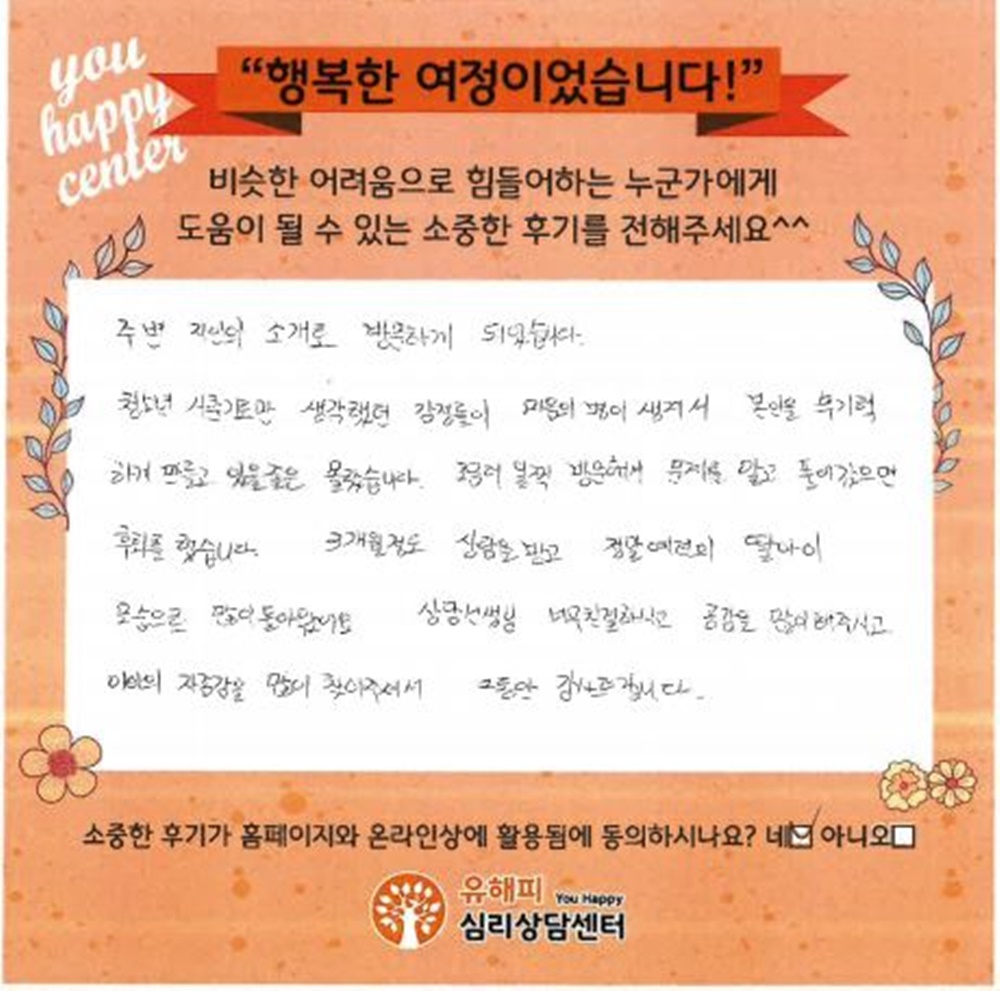 you
happy
center
“행복한 여정이었습니다!”
비슷한 어려움으로 힘들어하는 누군가에게
도움이 될 수 있는 소중한 후기를 전해주세요^^
주변 지인의 소개로 방문하게 되었습니다.
청소년 사춘기로만 생각했던 감정들이 마음의 병이 생겨서 본인을 무기력
하게 만들고 있을줄은 몰랐습니다. 좀더 일찍 방문해서 문제를 알고 풀어갔으면
후회를 했습니다. 3개월정도 상담을 받고 정말 예전의 딸아이
모습으로 많이 돌아왔어요 상담선생님 너무친절하시고 공감을 많이해주시고
아이의 자존감을 많이 찾아주셔서 그동안 감사드립니다.
소중한 후기가 홈페이지와 온라인상에 활용됨에 동의하시나요? 네☑ 아니오☐
유해피 You Happy
심리상담센터